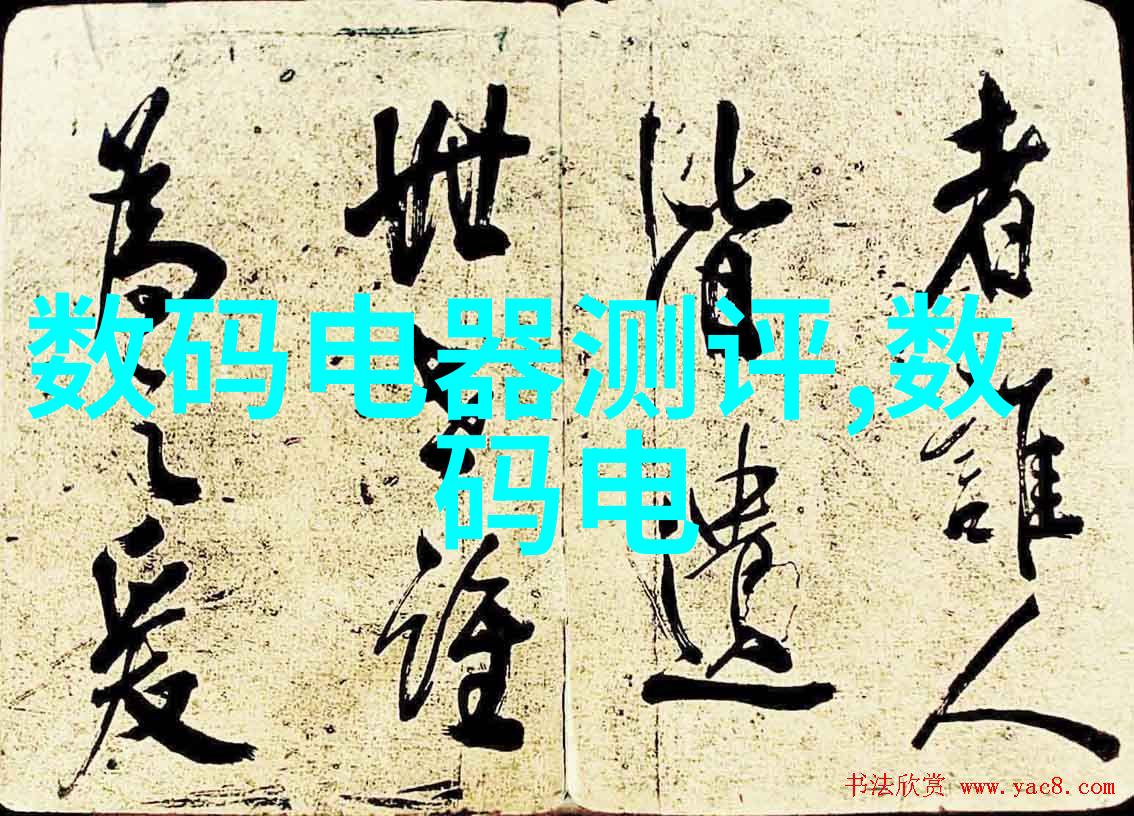 数码电器测评,数
码电
者誰人
皆遺
世誰
為之愛
书法欣赏 www.yac8.com